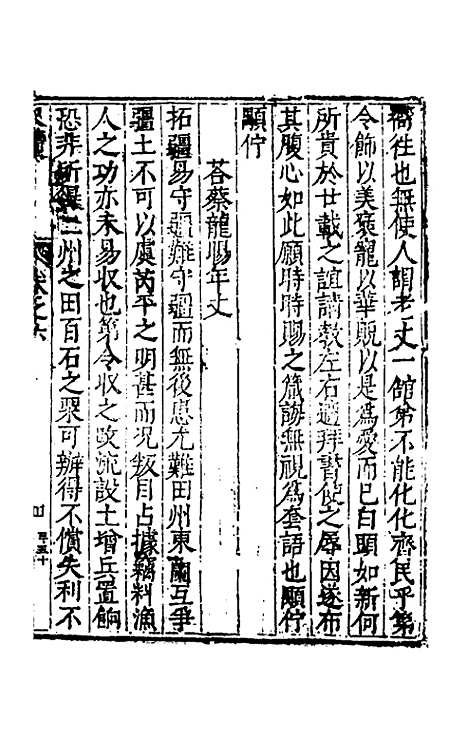 嚮往也無使人謂老丈一館第不能化化齊民乎第
令飾以美褒寵以華覬以是為愛而已白頭如新何
所貴於廿載之誼請教左右適拜瞽使之辱因遂布
其腹心如此願時時賜之箴誨無視為套語也顒佇
顒佇
荅蔡龍陽年丈
拓疆易守疆難守疆而無後患尤難田州東蘭互爭
疆土不可以虞芮平之明甚而况叛目占據竊料漁
人之功亦未易収也第令収之改流設土增兵置餉
恐非所得二州之田百石之粟可辦得不償失利不
卷之六